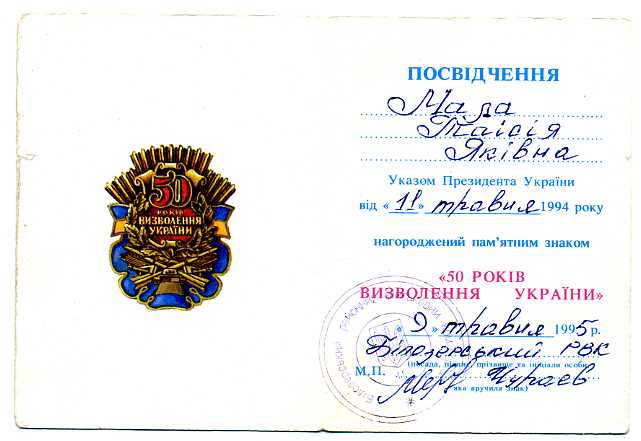 50
РОКІВ
ВИЗВОЛЕННЯ
УКРАЇНИ
ПОСВІДЧЕННЯ
Мала
Таісія
Яківна
Указом Президента України
від « 11 » травня 1994 року
нагороджений пам'ятним знаком
«50 РОКІВ
ВИЗВОЛЕННЯ УКРАЇНИ»
« 9 » травня 1995 р.
Білозерський РВК
М.П.
(посада, підпис, прізвище та ініціали особи,
Чураєв
яка вручила знак)